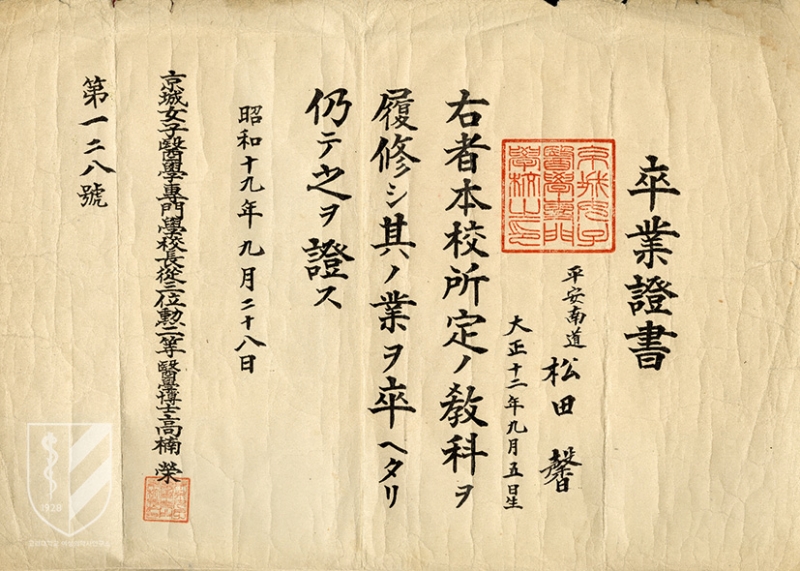 卒業證書
平安南道
松田馨
大正十二年九月五日生
右者本校所定ノ教科ヲ
履修シ其ノ業ヲ卒ヘタリ
仍テ之ヲ證ス
昭和十九年九月二十八日
京城女子醫學專門學校長從三位勲二等醫學博士高楠榮
第一二八號
京城女子
醫學專門
學校之印
1928